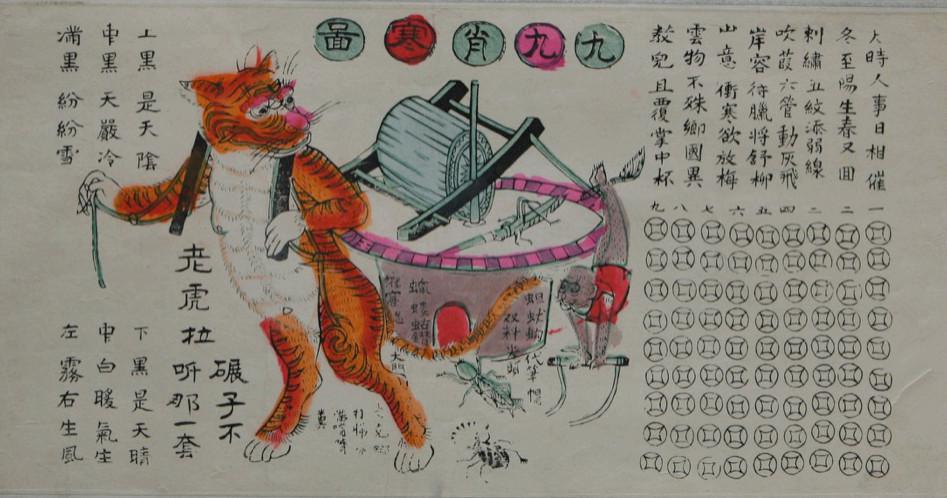 九九肖寒啚
天時人事日相催
冬至陽生春又囬
刺繡五紋添弱線
吹葭六管動灰飛
岸容待臘將舒柳
山意衝寒欲放梅
雲物不殊鄉國異
教兒且覆掌中杯
一 二 三 四 五 六 七 八 九
上黑是天陰
中黑天嚴冷
滿黑紛紛雪
老虎拉碾子不听那一套
下黑是天晴
中白暖氣生
左霧右生風